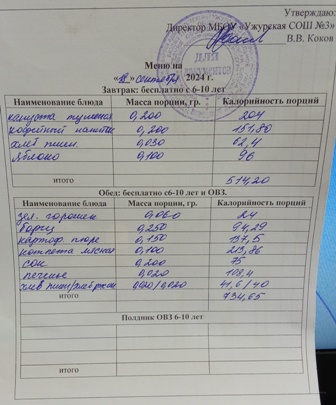 Утверждаю:
Директор МБОУ «Ужурская СОШ №3»
В.В. Коков
ДЛЯ
ДОКУМЕНТОВ
Меню на
сентября 2024 г.
Завтрак: бесплатно с 6-10 лет
Наименование блюда Масса порции, гр. Калорийность порций
капуста тушеная 0,200 204
кофейный напиток 0,200 151,80
хлеб пшен. 0,030 62,4
яблоко 0,100 96
итого 514,20
Обед: бесплатно с6-10 лет и ОВЗ.
Наименование блюда Масса порции, гр. Калорийность порций
зел. горошек 0,060 24
борщ 0,250 94,29
картоф. пюре 0,150 137,5
котлета мясная 0,100
сок 0,200 75
печенье 0,020 108,4
хлеб пшен/хлеб ржан 0,020/0,020 41,6/40
итого 734,65
Полдник ОВЗ 6-10 лет
итого